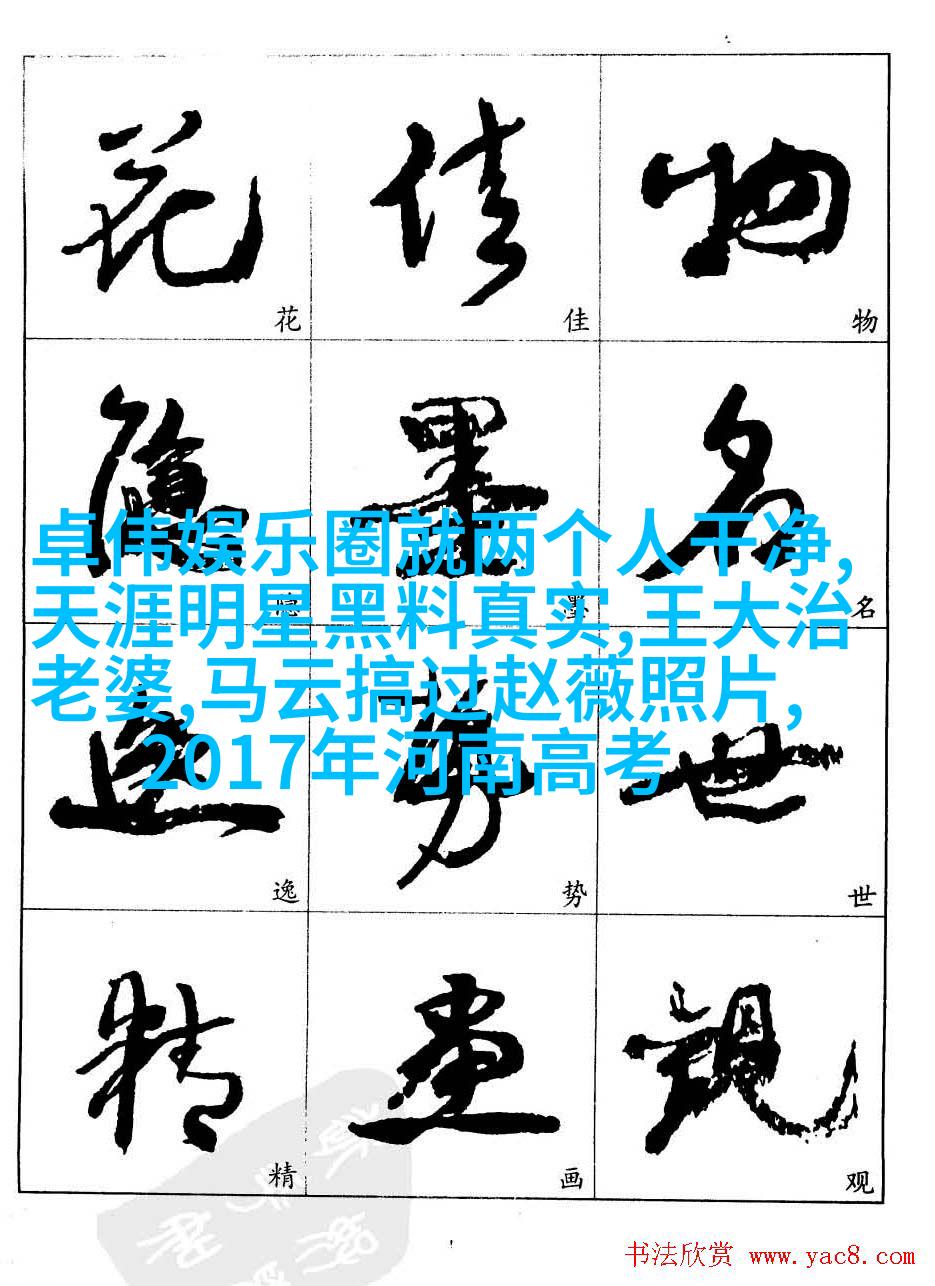 花 佳 物
花 佳 物
隐 墨 名
隐 墨 名
卓伟娱乐圈就两个人干净,
天涯明星黑料真实,王大治
老婆,马云搞过赵薇照片,
2017年河南高考
逸 势 世
逸 势 世
精 画 观
精 画 观
书法欣赏 www.yac8.com